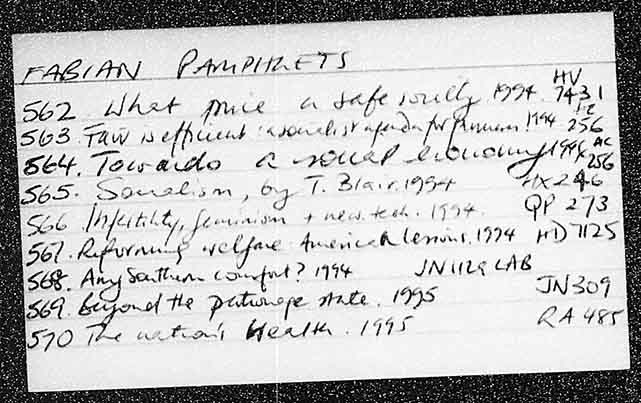 FABIAN PAMPHLETS
562. What price a safe society 1994. HV 7431
563. Fair is efficient: a socialist agenda for fairness! 1994 256
564. Towards a social economy 1994 AC 256
565. Socialism, by T. Blair. 1994 HX 246
566 Infertility, feminism + new tech. 1994. QP 273
567. Reforming welfare: American lessons. 1994 HD 7125
568. Any Southern comfort? 1994 JN 1129 LAB
569. Beyond the patronage state. 1995 JN 309
570 The nation's Health. 1995 RA 485